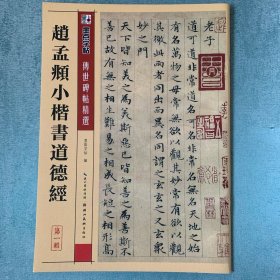 趙孟頫小楷書道德經
第一輯
傳世碑帖精選
老子
道可道非常道名可名非常名無名天地之始
有名萬物之母常無欲以觀其妙常有欲以觀
其徼此兩者同出而異名同謂之玄玄之又玄衆
妙之門
天下皆知美之為美斯惡已皆知善之為善斯不
故有無之相生難易之相成